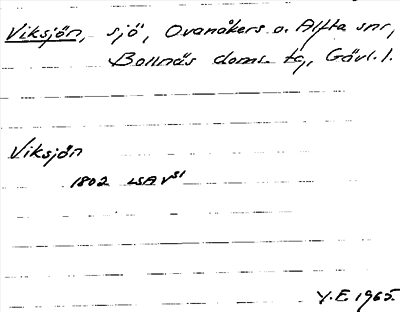 Viksjön, sjö, Ovanåkers o. Alfta snr,
Bollnäs doms. tg, Gävl. l.
Viksjön
1802 LSA V51
Y.E. 1965.